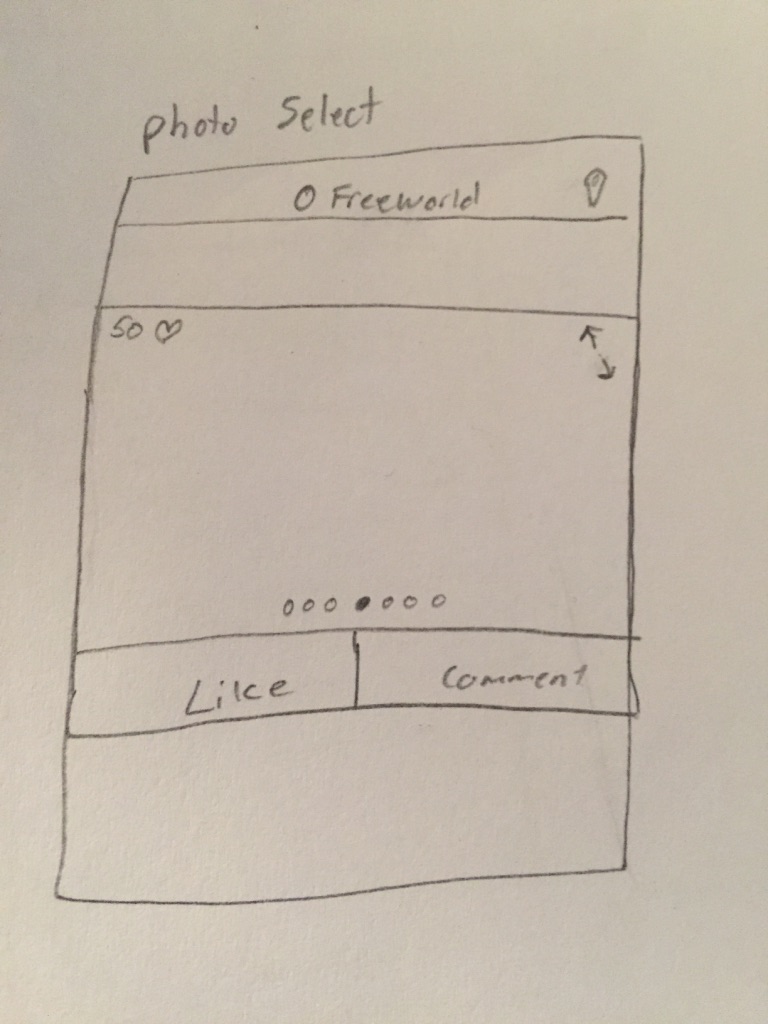 photo Select
O Freeworld
50 ♡
Like
Comment